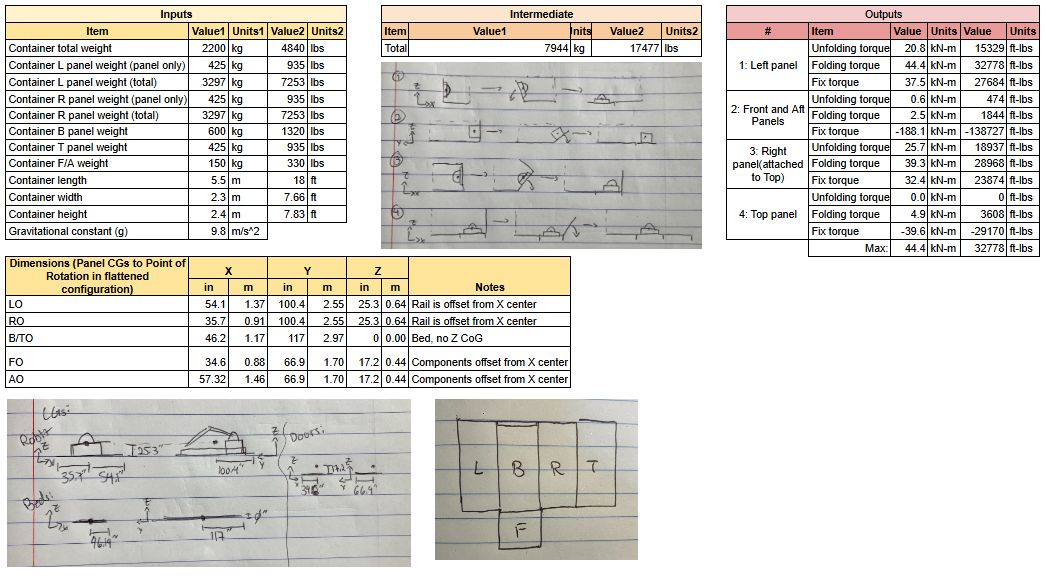 Inputs
Item Value1 Units1 Value2 Units2
Container total weight 2200 kg 4840 lbs
Container L panel weight (panel only) 425 kg 935 lbs
Container L panel weight (total) 3297 kg 7253 lbs
Container R panel weight (panel only) 425 kg 935 lbs
Container R panel weight (total) 3297 kg 7253 lbs
Container B panel weight 600 kg 1320 lbs
Container T panel weight 425 kg 935 lbs
Container F/A weight 150 kg 330 lbs
Container length 5.5 m 18 ft
Container width 2.3 m 7.66 ft
Container height 2.4 m 7.83 ft
Gravitational constant (g) 9.8 m/s^2
Intermediate
Item Value1 Units Value2 Units2
Total 7944 kg 17477 lbs
1
z
x
2
z
y
3
z
x
4
z
x
Outputs
# Item Value Units Value Units
1: Left panel
Unfolding torque 20.8 kN-m 15329 ft-lbs
Folding torque 44.4 kN-m 32778 ft-lbs
Fix torque 37.5 kN-m 27684 ft-lbs
2: Front and Aft
Panels
Unfolding torque 0.6 kN-m 474 ft-lbs
Folding torque 2.5 kN-m 1844 ft-lbs
Fix torque -188.1 kN-m -138727 ft-lbs
3: Right
panel(attached
to Top)
Unfolding torque 25.7 kN-m 18937 ft-lbs
Folding torque 39.3 kN-m 28968 ft-lbs
Fix torque 32.4 kN-m 23874 ft-lbs
4: Top panel
Unfolding torque 0.0 kN-m 0 ft-lbs
Folding torque 4.9 kN-m 3608 ft-lbs
Fix torque -39.6 kN-m -29170 ft-lbs
Max: 44.4 kN-m 32778 ft-lbs
Dimensions (Panel CGs to Point of
Rotation in flattened
configuration)
X Y Z
in m in m in m Notes
LO 54.1 1.37 100.4 2.55 25.3 0.64 Rail is offset from X center
RO 35.7 0.91 100.4 2.55 25.3 0.64 Rail is offset from X center
B/TO 46.2 1.17 117 2.97 0 0.00 Bed, no Z CoG
FO 34.6 0.88 66.9 1.70 17.2 0.44 Components offset from X center
AO 57.32 1.46 66.9 1.70 17.2 0.44 Components offset from X center
CGs:
z
x
35.7" 54.1"
25.3"
100.4"
z
y
Doors:
z
y
66.9"
Beds:
z
x
46.19"
z
y
117"
L B R T
F